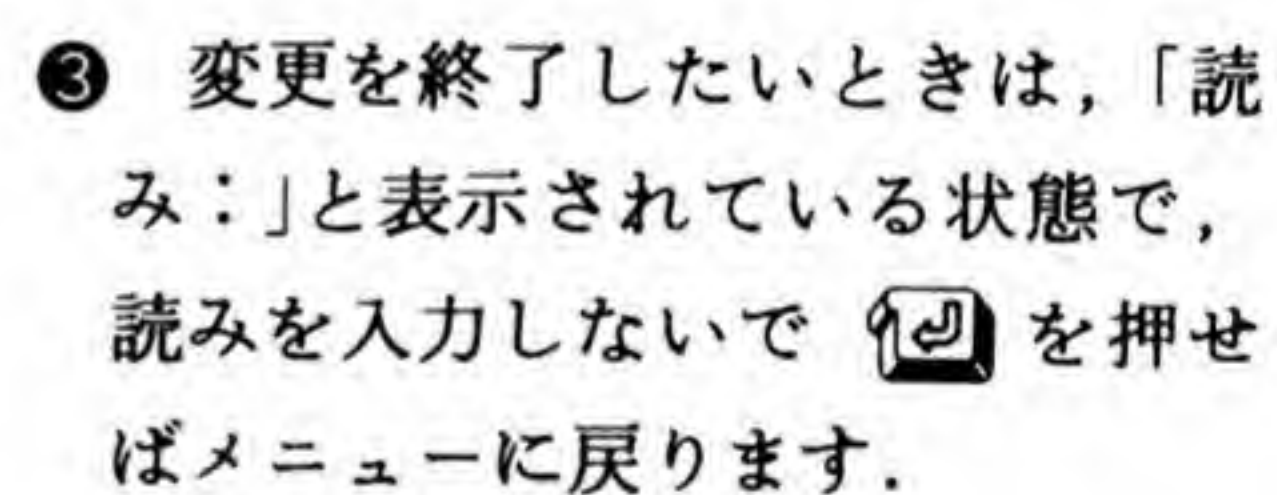 ❸ 変更を終了したいときは，「読
み：」と表示されている状態で，
読みを入力しないで ⏎ を押せ
ばメニューに戻ります．